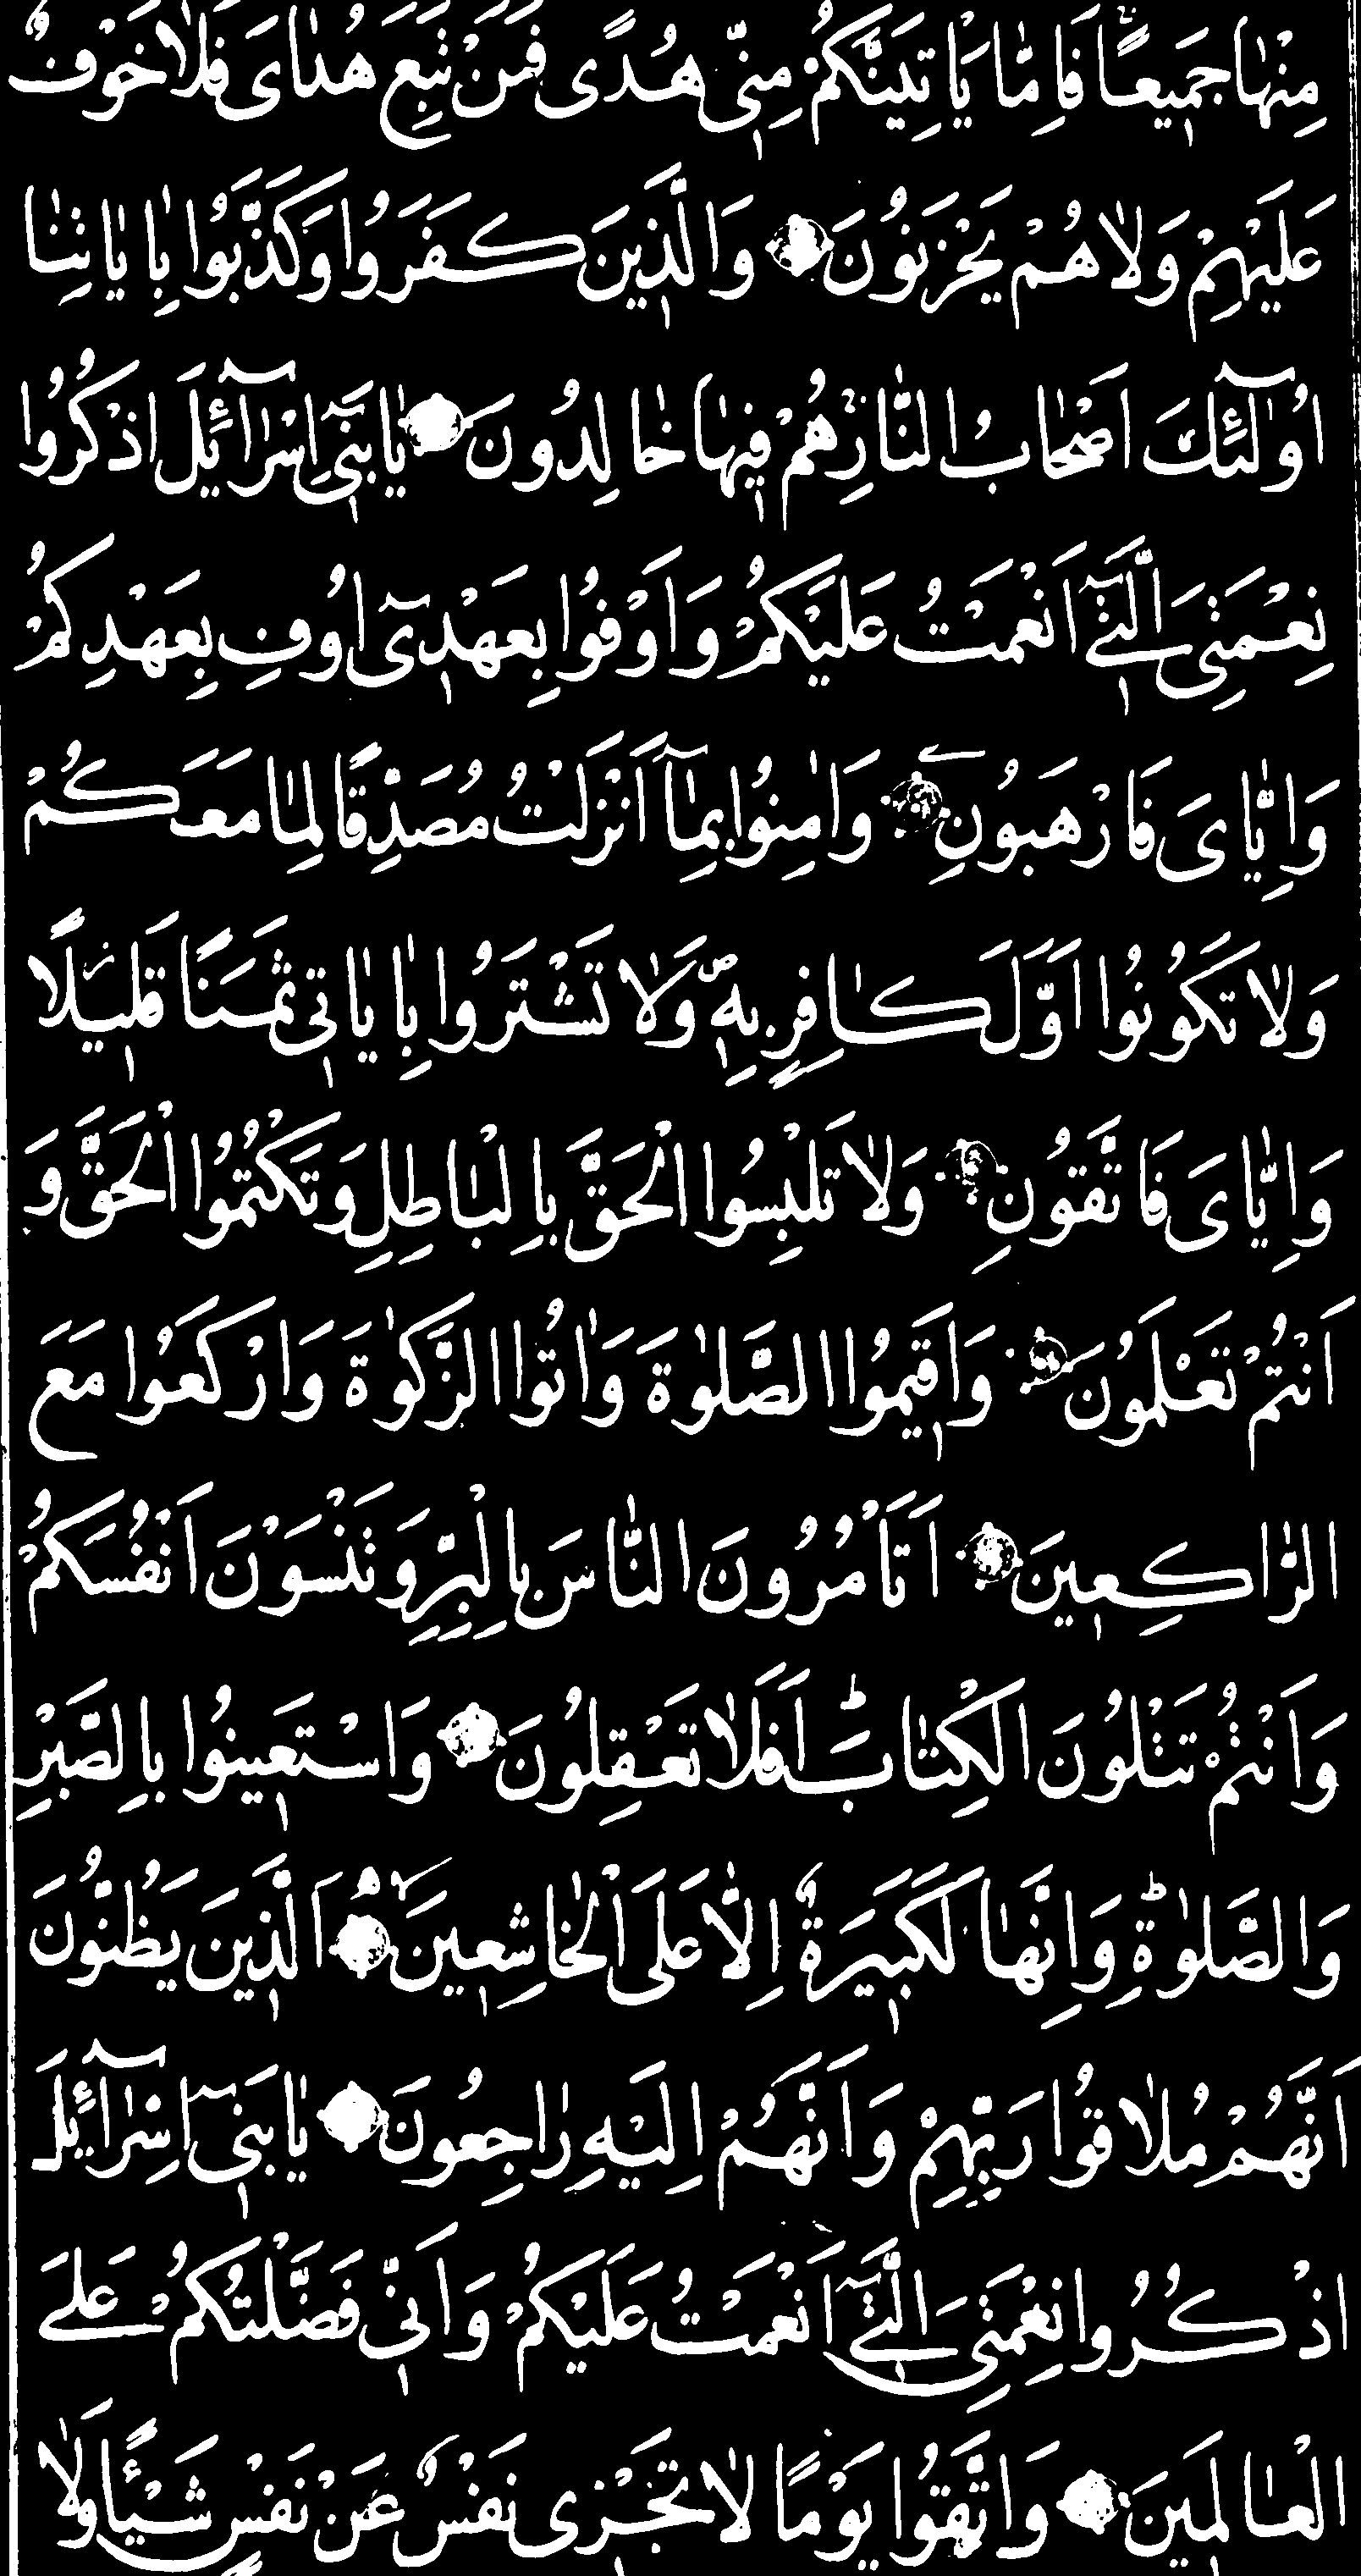 مِنْهَا جَمِيعًا فَاِمَّا يَاْتِيَنَّكُمْ مِنِّي هُدًى فَمَنْ تَبِعَ هُدَايَ فَلَا خَوْفٌ
عَلَيْهِمْ وَلَا هُمْ يَحْزَنُونَ وَالَّذِينَ كَفَرُوا وَكَذَّبُوا بِاٰيَاتِنَا
اُولٰئِكَ اَصْحَابُ النَّارِ هُمْ فِيهَا خَالِدُونَ يَا بَنِٓي اِسْرَٓائِلَ اذْكُرُوا
نِعْمَتِيَ الَّتِٓي اَنْعَمْتُ عَلَيْكُمْ وَاَوْفُوا بِعَهْدِٓي اُوفِ بِعَهْدِكُمْ
وَاِيَّايَ فَارْهَبُونِ وَاٰمِنُوا بِمَٓا اَنْزَلْتُ مُصَدِّقًا لِمَا مَعَكُمْ
وَلَا تَكُونُوا اَوَّلَ كَافِرٍ بِهِ وَلَا تَشْتَرُوا بِاٰيَاتِي ثَمَنًا قَلِيلًا
وَاِيَّايَ فَاتَّقُونِ وَلَا تَلْبِسُوا الْحَقَّ بِالْبَاطِلِ وَتَكْتُمُوا الْحَقَّ وَ
اَنْتُمْ تَعْلَمُونَ وَاَقِيمُوا الصَّلٰوةَ وَاٰتُوا الزَّكٰوةَ وَارْكَعُوا مَعَ
الرَّاكِعِينَ اَتَاْمُرُونَ النَّاسَ بِالْبِرِّ وَتَنْسَوْنَ اَنْفُسَكُمْ
وَاَنْتُمْ تَتْلُونَ الْكِتَابَ اَفَلَا تَعْقِلُونَ وَاسْتَعِينُوا بِالصَّبْرِ
وَالصَّلٰوةِ وَاِنَّهَا لَكَبِيرَةٌ اِلَّا عَلَى الْخَاشِعِينَ اَلَّذِينَ يَظُنُّونَ
اَنَّهُمْ مُلَاقُوا رَبِّهِمْ وَاَنَّهُمْ اِلَيْهِ رَاجِعُونَ يَا بَنِٓي اِسْرَٓائِلَ
اذْكُرُوا نِعْمَتِيَ الَّتِٓي اَنْعَمْتُ عَلَيْكُمْ وَاَنِّي فَضَّلْتُكُمْ عَلَى
الْعَالَمِينَ وَاتَّقُوا يَوْمًا لَا تَجْزِي نَفْسٌ عَنْ نَفْسٍ شَيْـًٔا وَلَا